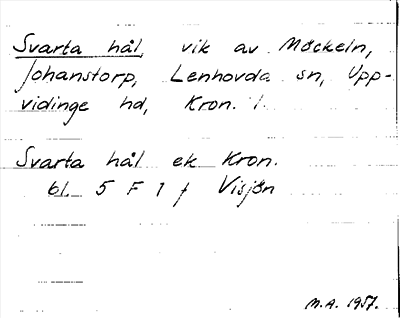 Svarta hål, vik av Möckeln,
Johanstorp, Lenhovda sn, Upp-
vidinge hd, Kron. l.
Svarta hål ek Kron.
bl. 5 F 1 f Visjön
M.A. 1957.